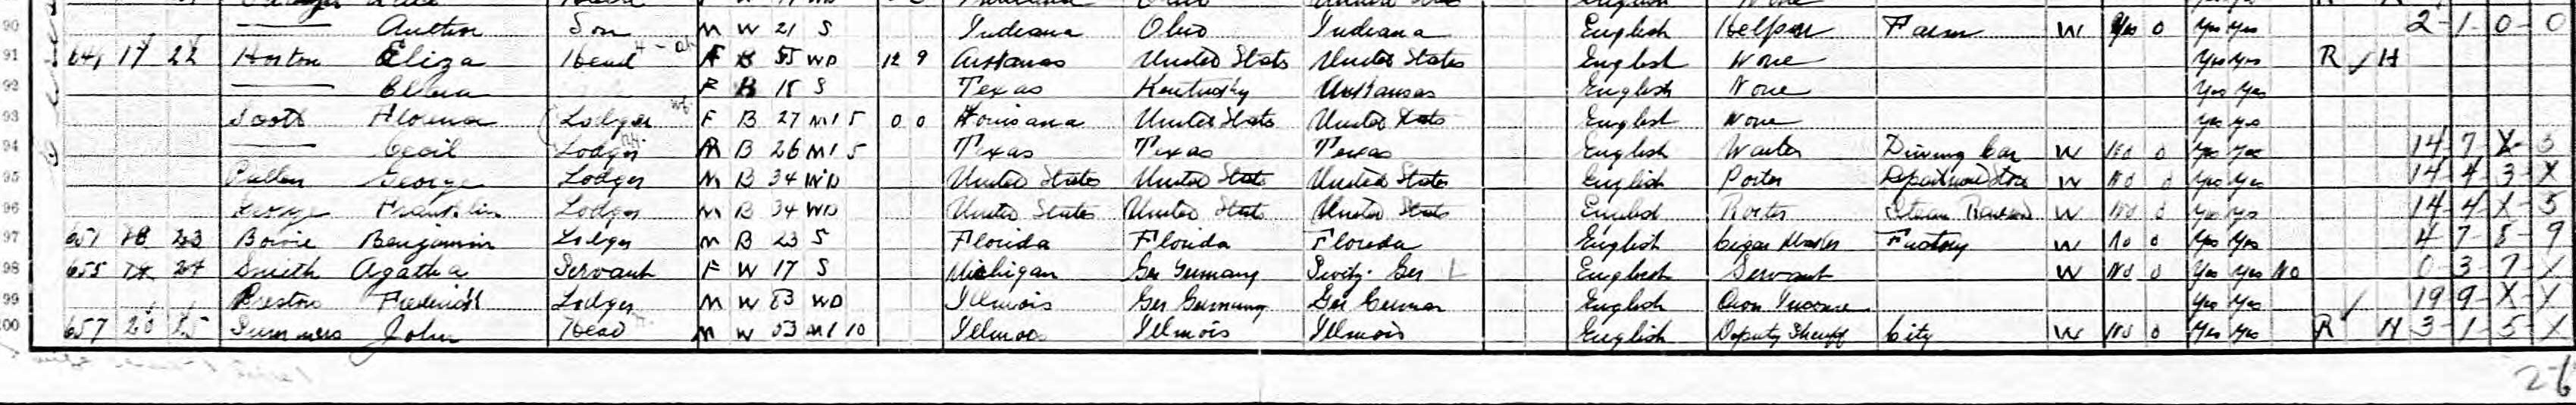 90 Son M W 21 S Indiana Ohio Indiana English Helper Farm W Yes 0 Yes Yes 2-1-0-0
91 641 17 22 Horton Eliza Head F B 55 WD 12 9 Arkansas United States United States English None Yes Yes R ✓ H
92 F B 18 S Texas Kentucky Arkansas English None Yes Yes
93 Scott Lodger F B 27 M 15 0 0 Louisiana United States United States English None Yes Yes
94 Cecil Lodger M B 26 M 15 Texas Texas Texas English Waiter Dining Car W No 0 Yes Yes 14-7-X-5
95 Pullen George Lodger M B 34 WD United States United States United States English Porter Department Store W No 0 Yes Yes 14-4-3-X
96 George Franklin Lodger M B 34 WD United States United States United States English Porter Steam W No 0 Yes Yes 14-4-X-5
97 651 18 23 Bowie Benjamin Lodger M B 23 S Florida Florida Florida English Cigar Maker Factory W No 0 Yes Yes 4-7-8-9
98 655 24 Smith Agatha Servant F W 17 S Michigan Ger Germany English Servant W No 0 Yes Yes No 0 3-7-X
99 Preston Frederick Lodger M W 83 WD Illinois Ger Germany Ger German English Own Income Yes Yes ✓ 19 9-X-X
100 657 20 25 Summers John Head M W 53 M 1 10 Illinois Illinois Illinois English Deputy Sheriff City W No 0 Yes Yes R H 3-1-5-X
26